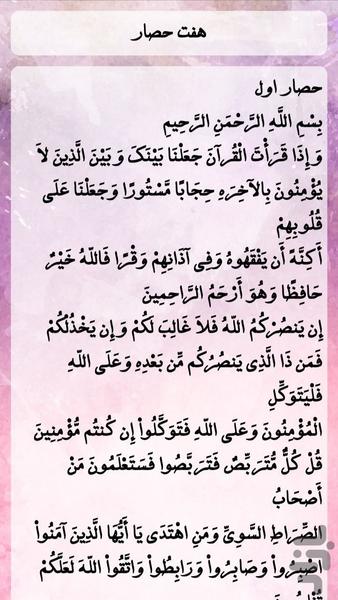 هفت حصار
حصار اول
بِسْمِ اللَّهِ الرَّحْمَنِ الرَّحِيمِ
وَ إِذَا قَرَأْتَ الْقُرآنَ جَعَلْنَا بَيْنَکَ وَ بَيْنَ الَّذِينَ لاَ
يُؤْمِنُونَ بِالآخِرَهِ حِجَابًا مَّسْتُورًا وَجَعَلْنَا عَلَى
قُلُوبِهِمْ
أَكِنَّةً أَن يَفْقَهُوهُ وَفِي آذَانِهِمْ وَقْرًا فَاللّهُ خَيْرٌ
حَافِظًا وَهُوَ أَرْحَمُ الرَّاحِمِينَ
إِن يَنصُرْكُمُ اللّهُ فَلاَ غَالِبَ لَكُمْ وَإِن يَخْذُلْكُمْ
فَمَن ذَا الَّذِي يَنصُرُكُم مِّن بَعْدِهِ وَعَلَى اللّهِ
فَلْيَتَوَكِّلِ
الْمُؤْمِنُونَ وَعَلَى اللّهِ فَتَوَكَّلُواْ إِن كُنتُم مُّؤْمِنِينَ
قُلْ كُلٌّ مُّتَرَبِّصٌ فَتَرَبَّصُوا فَسَتَعْلَمُونَ مَنْ
أَصْحَابُ
الصِّرَاطِ السَّوِيِّ وَمَنِ اهْتَدَى يَا أَيُّهَا الَّذِينَ آمَنُواْ
اصْبِرُواْ وَصَابِرُواْ وَرَابِطُواْ وَاتَّقُواْ اللّهَ لَعَلَّكُمْ
بازار